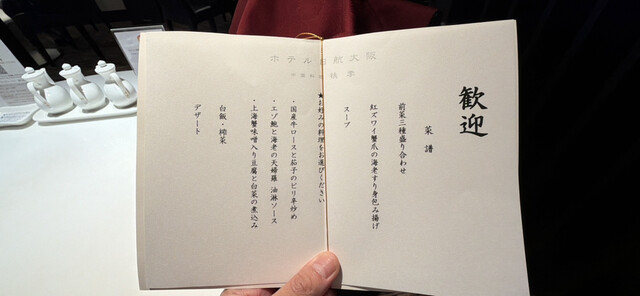 歓迎
菜譜
前菜三種盛り合わせ
紅ズワイ蟹爪の海老すり身包み揚げ
スープ
★お好みの料理をお選びください
・国産牛ロースと茄子のピリ辛炒め
・エゾ鮑と海老の天婦羅 油淋ソース
・上海蟹味噌入り豆腐と白菜の煮込み
白飯・搾菜
デザート
ホテル日航大阪
中国料理 桃李